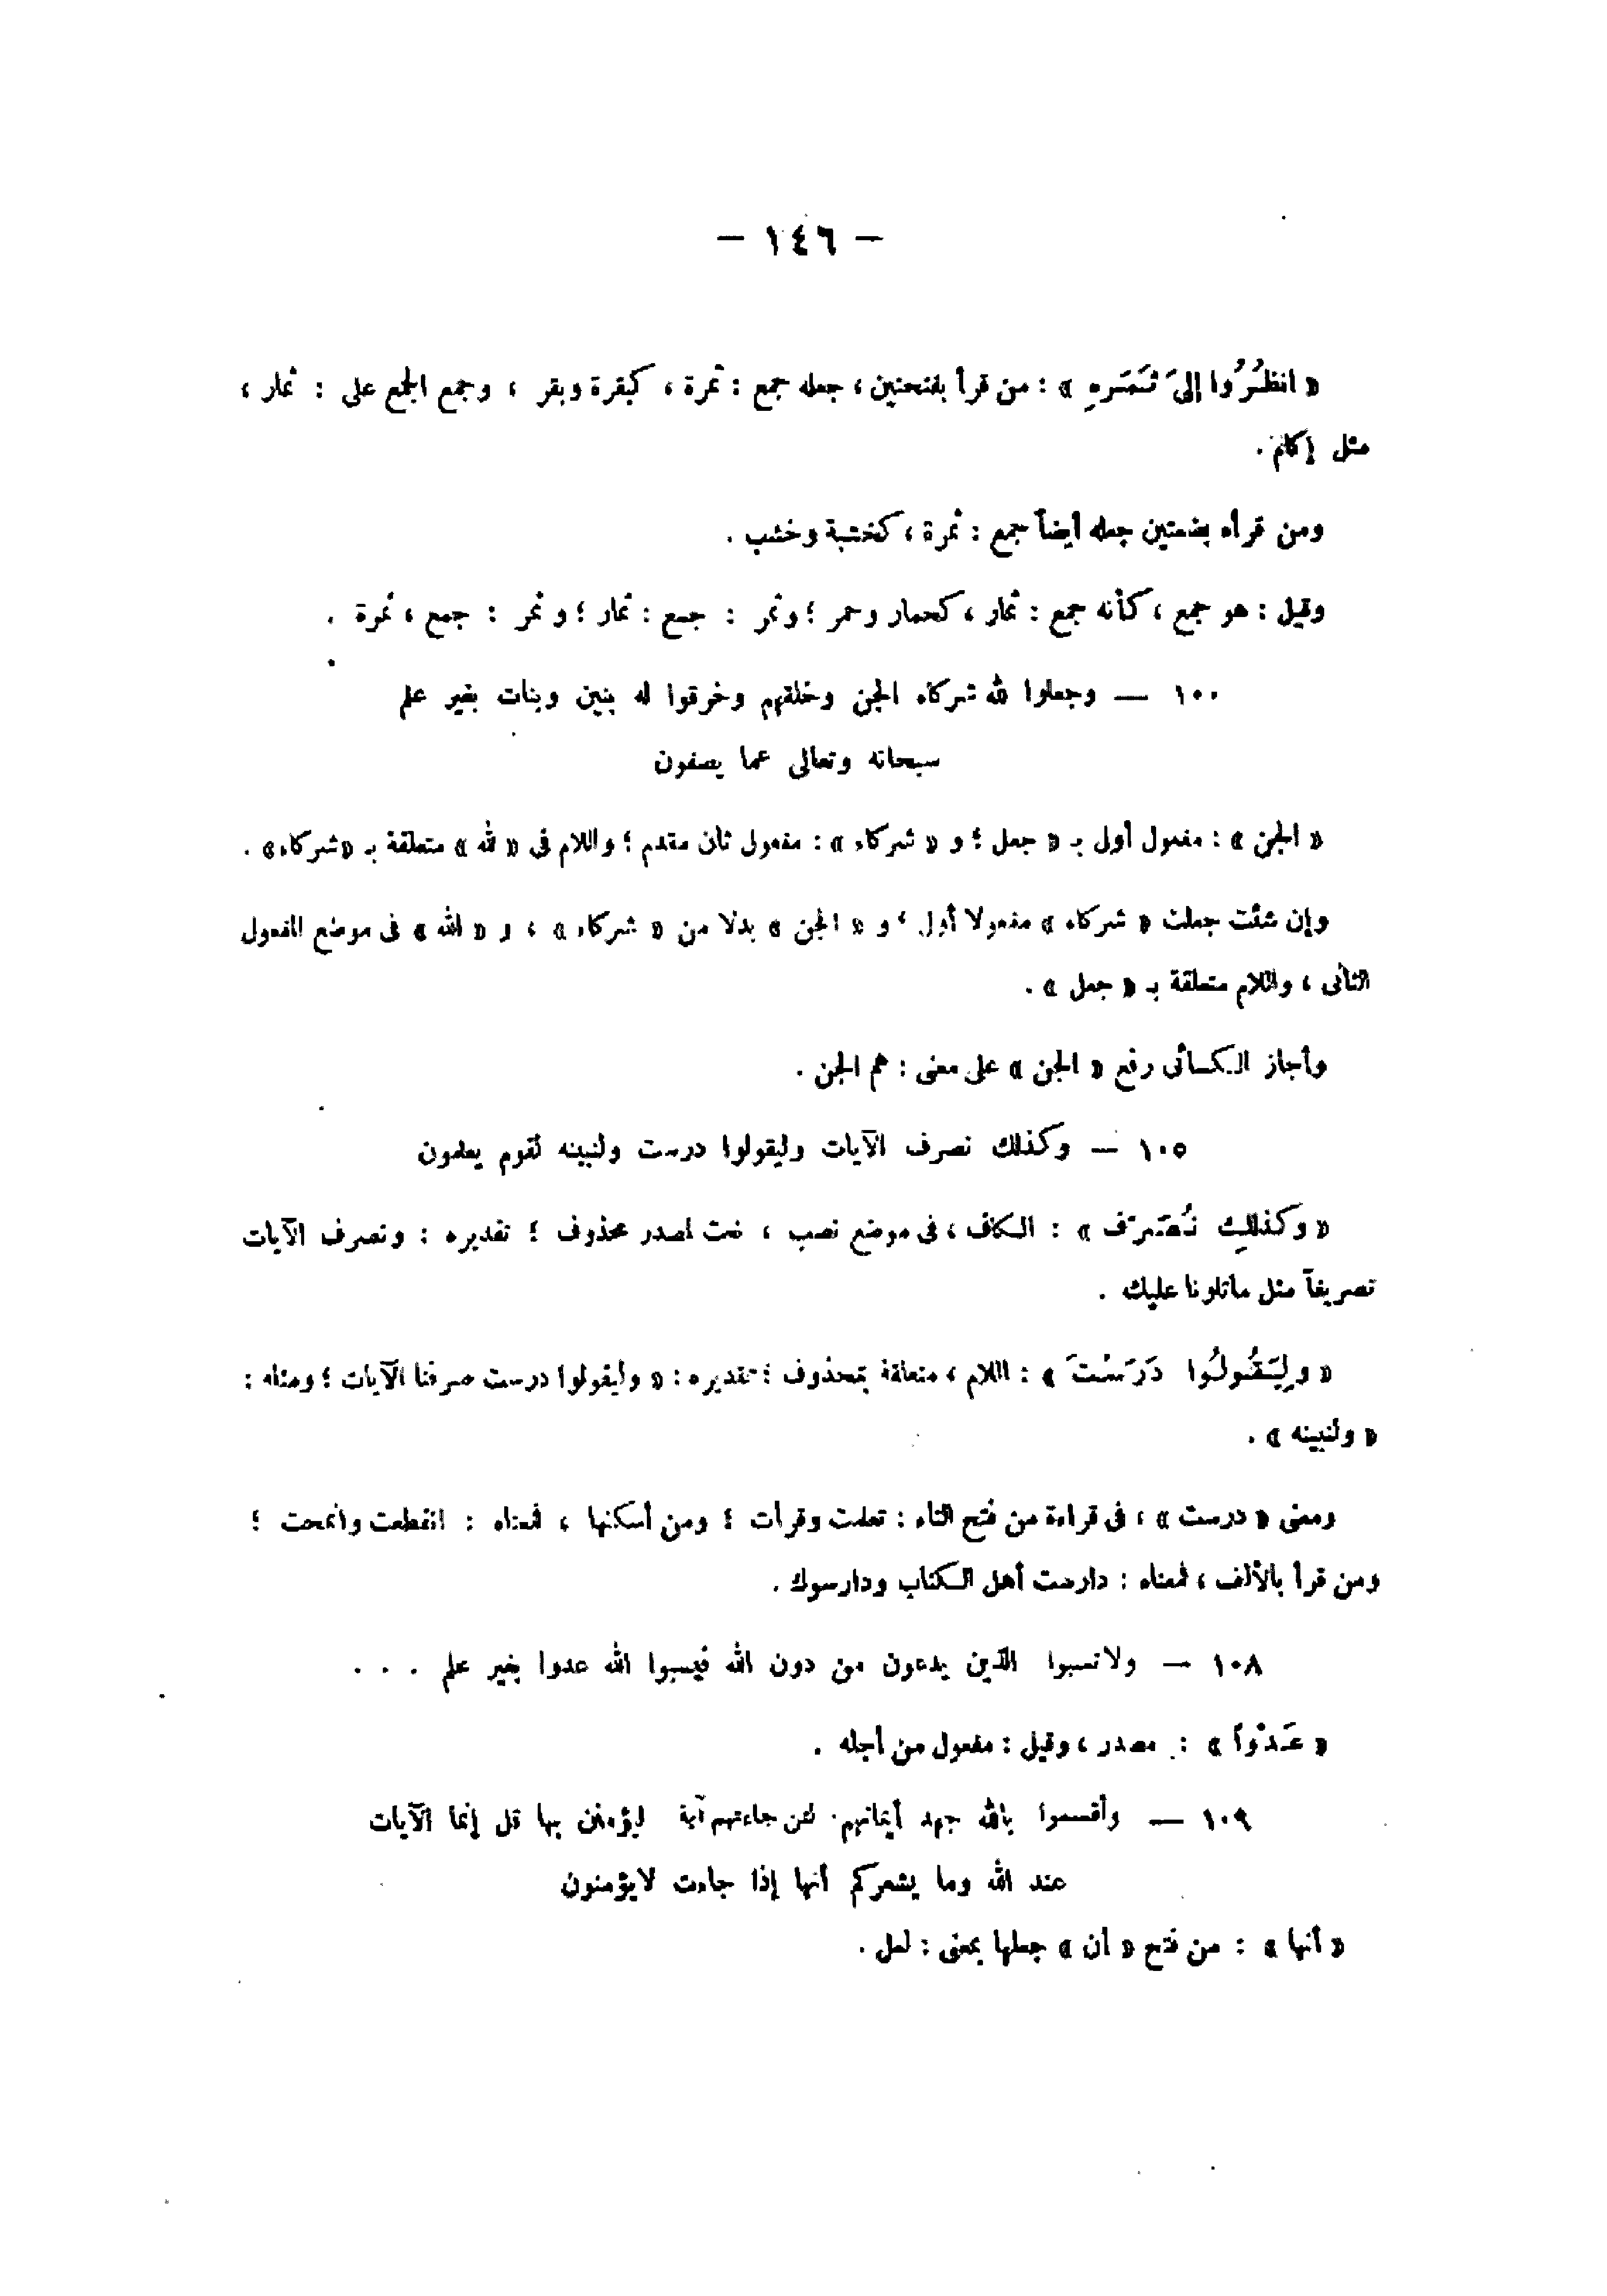 — ١٤٦ —
« انظُرُوا إلىَ ثَمَرهِ » : من قرأ بفتحتين ، جعله جمع : ثمرة ، كبقرة وبقر ، وجمع الجمع على : ثمار ،
مثل إكام .
ومن قرأه بضمتين جعله أيضاً جمع : ثمرة ، كخشبة وخشب .
وقيل : هو جمع ، كأنه جمع : ثمار ، كحمار وحمر ؛ وثمر : جمع : ثمار ؛ و ثمر : جمع ، ثمرة .
١٠٠ — وجعلوا لله شركاء الجن وخلقهم وخرقوا له بنين وبنات بغير علم
سبحانه وتعالى عما يصفون
« الجن » : مفعول أول بـ « جعل ؛ و « شركاء » : مفعول ثان مقدم ؛ واللام فى « لله » متعلقة بـ «شركاء» .
وإن شئت جعلت « شركاء » مفعولا أول ؛ و « الجن » بدلا من « شركاء » ، و « الله » فى موضع المفعول
الثانى ، واللام متعلقة بـ « جعل » .
وأجاز الكسائى رفع « الجن » على معنى : هم الجن .
١٠٥ — وكذلك نصرف الآيات وليقولوا درست ولنبينه لقوم يعلمون
« وكذلِك نُصَرّف » : الكاف ، فى موضع نصب ، نعت لمصدر محذوف ؛ تقديره : ونصرف الآيات
تصريفاً مثل ماتلونا عليك .
« ولِيَقُولُوا دَرَسْتَ » : اللام ، متعلقة بمحذوف ؛ تقديره : « وليقولوا درست صرفنا الآيات ؛ ومثله :
« ولنبينه » .
ومعنى « درست » ، فى قراءة من فتح التاء : تعلمت وقرأت ؛ ومن أسكنها ، فمعناه : انقطعت وانمحت ؛
ومن قرأ بالألف ، فمعناه : دارست أهل الكتاب ودارسوك .
١٠٨ — ولاتسبوا الذين يدعون من دون الله فيسبوا الله عدوا بغير علم . . .
« عَدْواً » : مصدر ، وقيل : مفعول من أجله .
١٠٩ — وأقسموا بالله جهد أيمانهم لئن جاءتهم آية ليؤمنن بها قل إنما الآيات
عند الله وما يشعركم أنها إذا جاءت لايؤمنون
« أنها » : من فتح « أن » جعلها بمعنى : لعل .